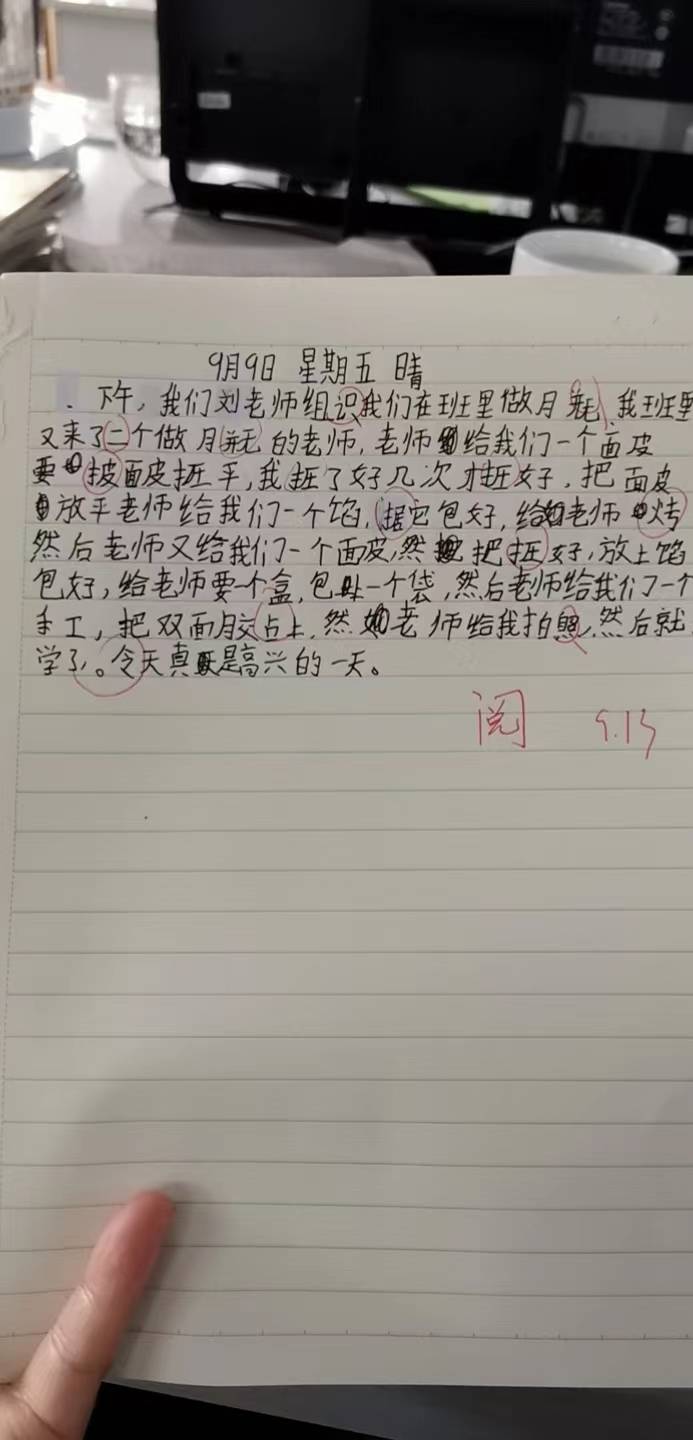 9月9日 星期五 晴
下午，我们刘老师组识我们在班里做月并毛，我班里
又来了二个做月并无的老师，老师给我们一个面皮
要披面皮抂平，我抂了好几次才抂好，把面皮
放平老师给我们一个馅，据它包好，给老师烤
然后老师又给我们一个面皮，然把抂好，放上馅
包好，给老师要一个盒，包上一个袋，然后老师给我们一个
手工，把双面胶占上，然老师给我拍照，然后就
学了。令天真是高兴的一天。
阅 9.13